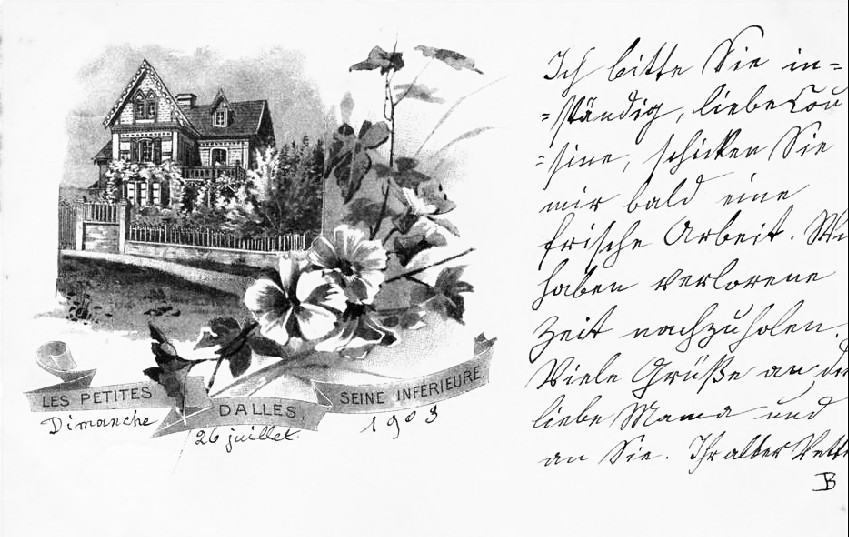 LES PETITES DALLES, SEINE INFERIEURE
Dimanche 26 juillet. 1903
Ich bitte Sie in=
=ständig, liebe Cou
=sine, schicken Sie
mir bald eine
frische Arbeit. Wi
haben verlorene
Zeit nachzuholen.
Viele Grüße an die
liebe Mama und
an Sie. Ihr alter Vette
B